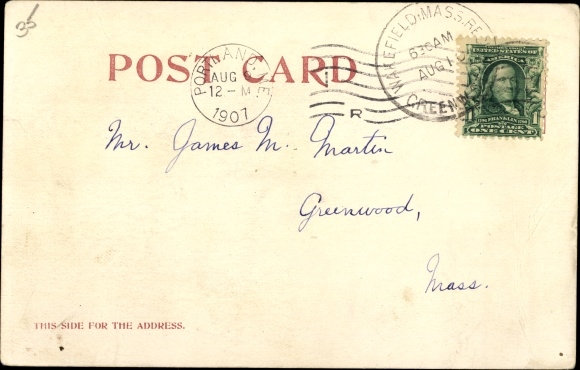 35
POST CARD
PORTLAND, ME.
AUG 6
12 - M
1907
R
WAKEFIELD, MASS. REC'D
630 AM
AUG
GREENW
UNITED STATES OF
AMERICA
1 FRANKLIN 1
POSTAGE
ONE CENT
Mr. James M. Martin
Greenwood,
Mass.
THIS SIDE FOR THE ADDRESS.